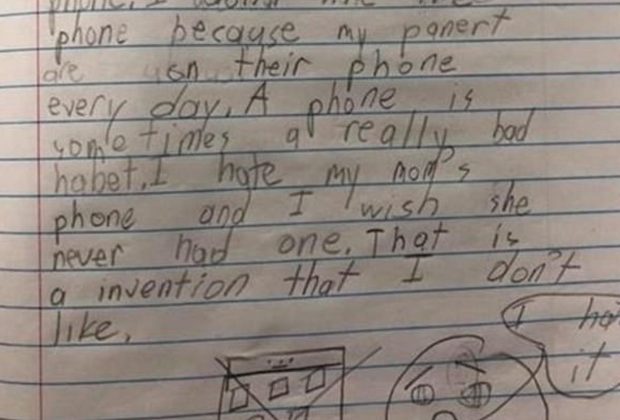 phone because my panert
are on their phone
every day. A phone is
sometimes a really bad
habet. I hate my mom's
phone and I wish she
never had one. That is
a invention that I don't
like.
I
it